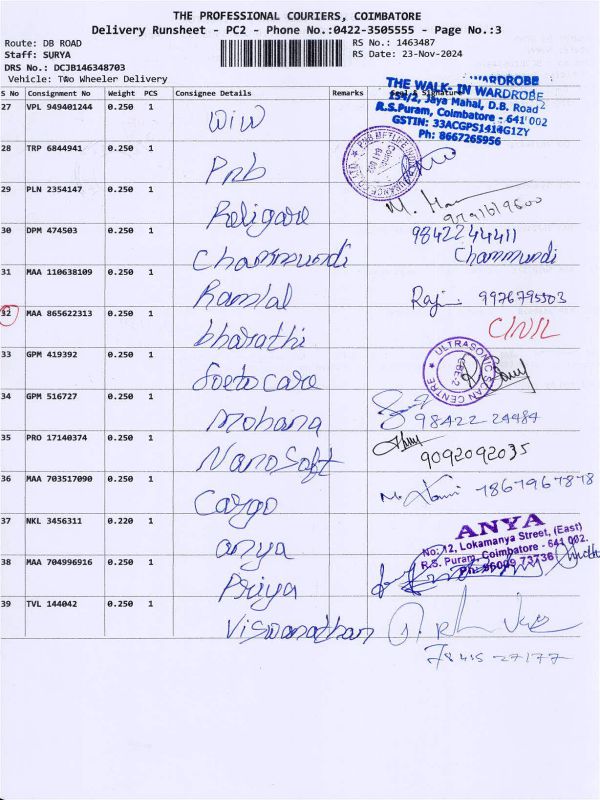 THE PROFESSIONAL COURIERS, COIMBATORE
Delivery Runsheet - PC2 - Phone No.:0422-3505555 - Page No.:3
Route: DB ROAD
Staff: SURYA
DRS No.: DCJB146348703
Vehicle: Two Wheeler Delivery
RS No.: 1463487
RS Date: 23-Nov-2024
S No Consignment No Weight PCS Consignee Details Remarks Signature
WARDROBE
THE WALK- IN WARDROBE
154/2, Jaya Mahal, D.B. Road
R.S.Puram, Coimbatore - 641 002
GSTIN: 33ACGPS1414G1ZY
Ph: 8667265956
27 VPL 949401244 0.250 1 WIW
28 TRP 6844941 0.250 1 Pnb
PNB METLIFE INDIA INSURANCE CO. LTD
641 002
29 PLN 2354147 0.250 1 Religare M.
30 DPM 474503 0.250 1 Chammundi 9842244411
Chammundi
31 MAA 110638109 0.250 1 Ramlal Raji 9976795503
32 MAA 865622313 0.250 1 bharathi C/NIL
33 GPM 419392 0.250 1 foeto care
ULTRASONIC SCAN CENTRE
CBE-2
34 GPM 516727 0.250 1 Mohana 98422 24484
35 PRO 17140374 0.250 1 Nanosoft 9092092035
36 MAA 703517090 0.250 1 Cargo
37 NKL 3456311 0.220 1 anya
ANYA
No: 12, Lokamanya Street, (East)
R.S. Puram, Coimbatore - 641 002.
Ph: 96009 73736
38 MAA 704996916 0.250 1 Priya
39 TVL 144042 0.250 1 Viswanathan
78 415 27177